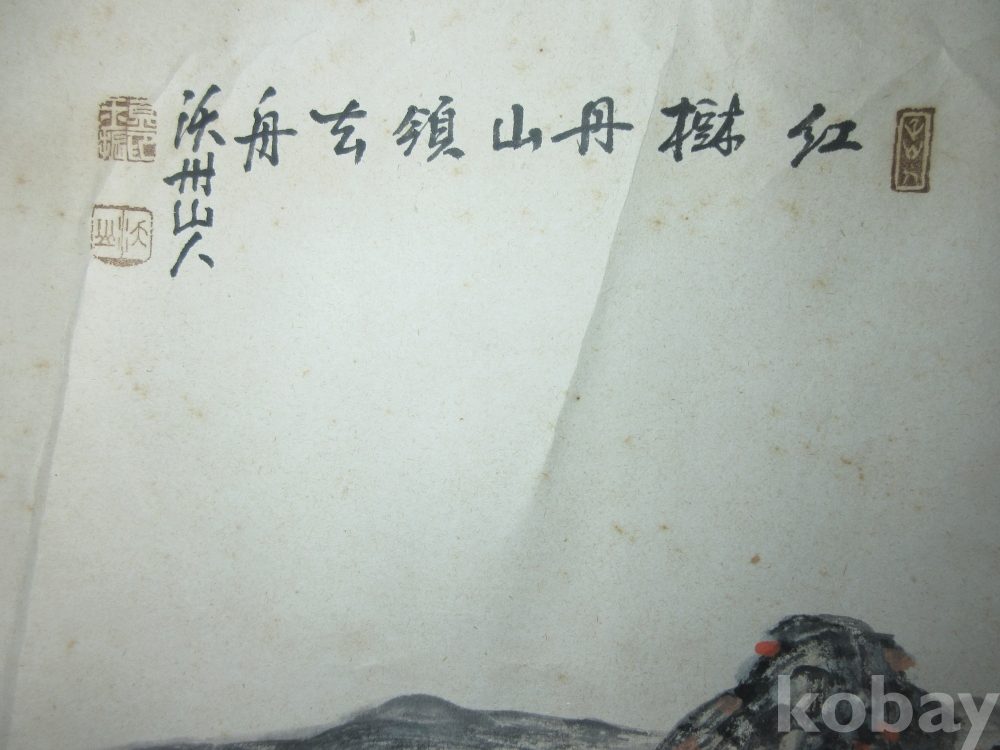 紅樹丹山領去舟
沃州山人
kobay